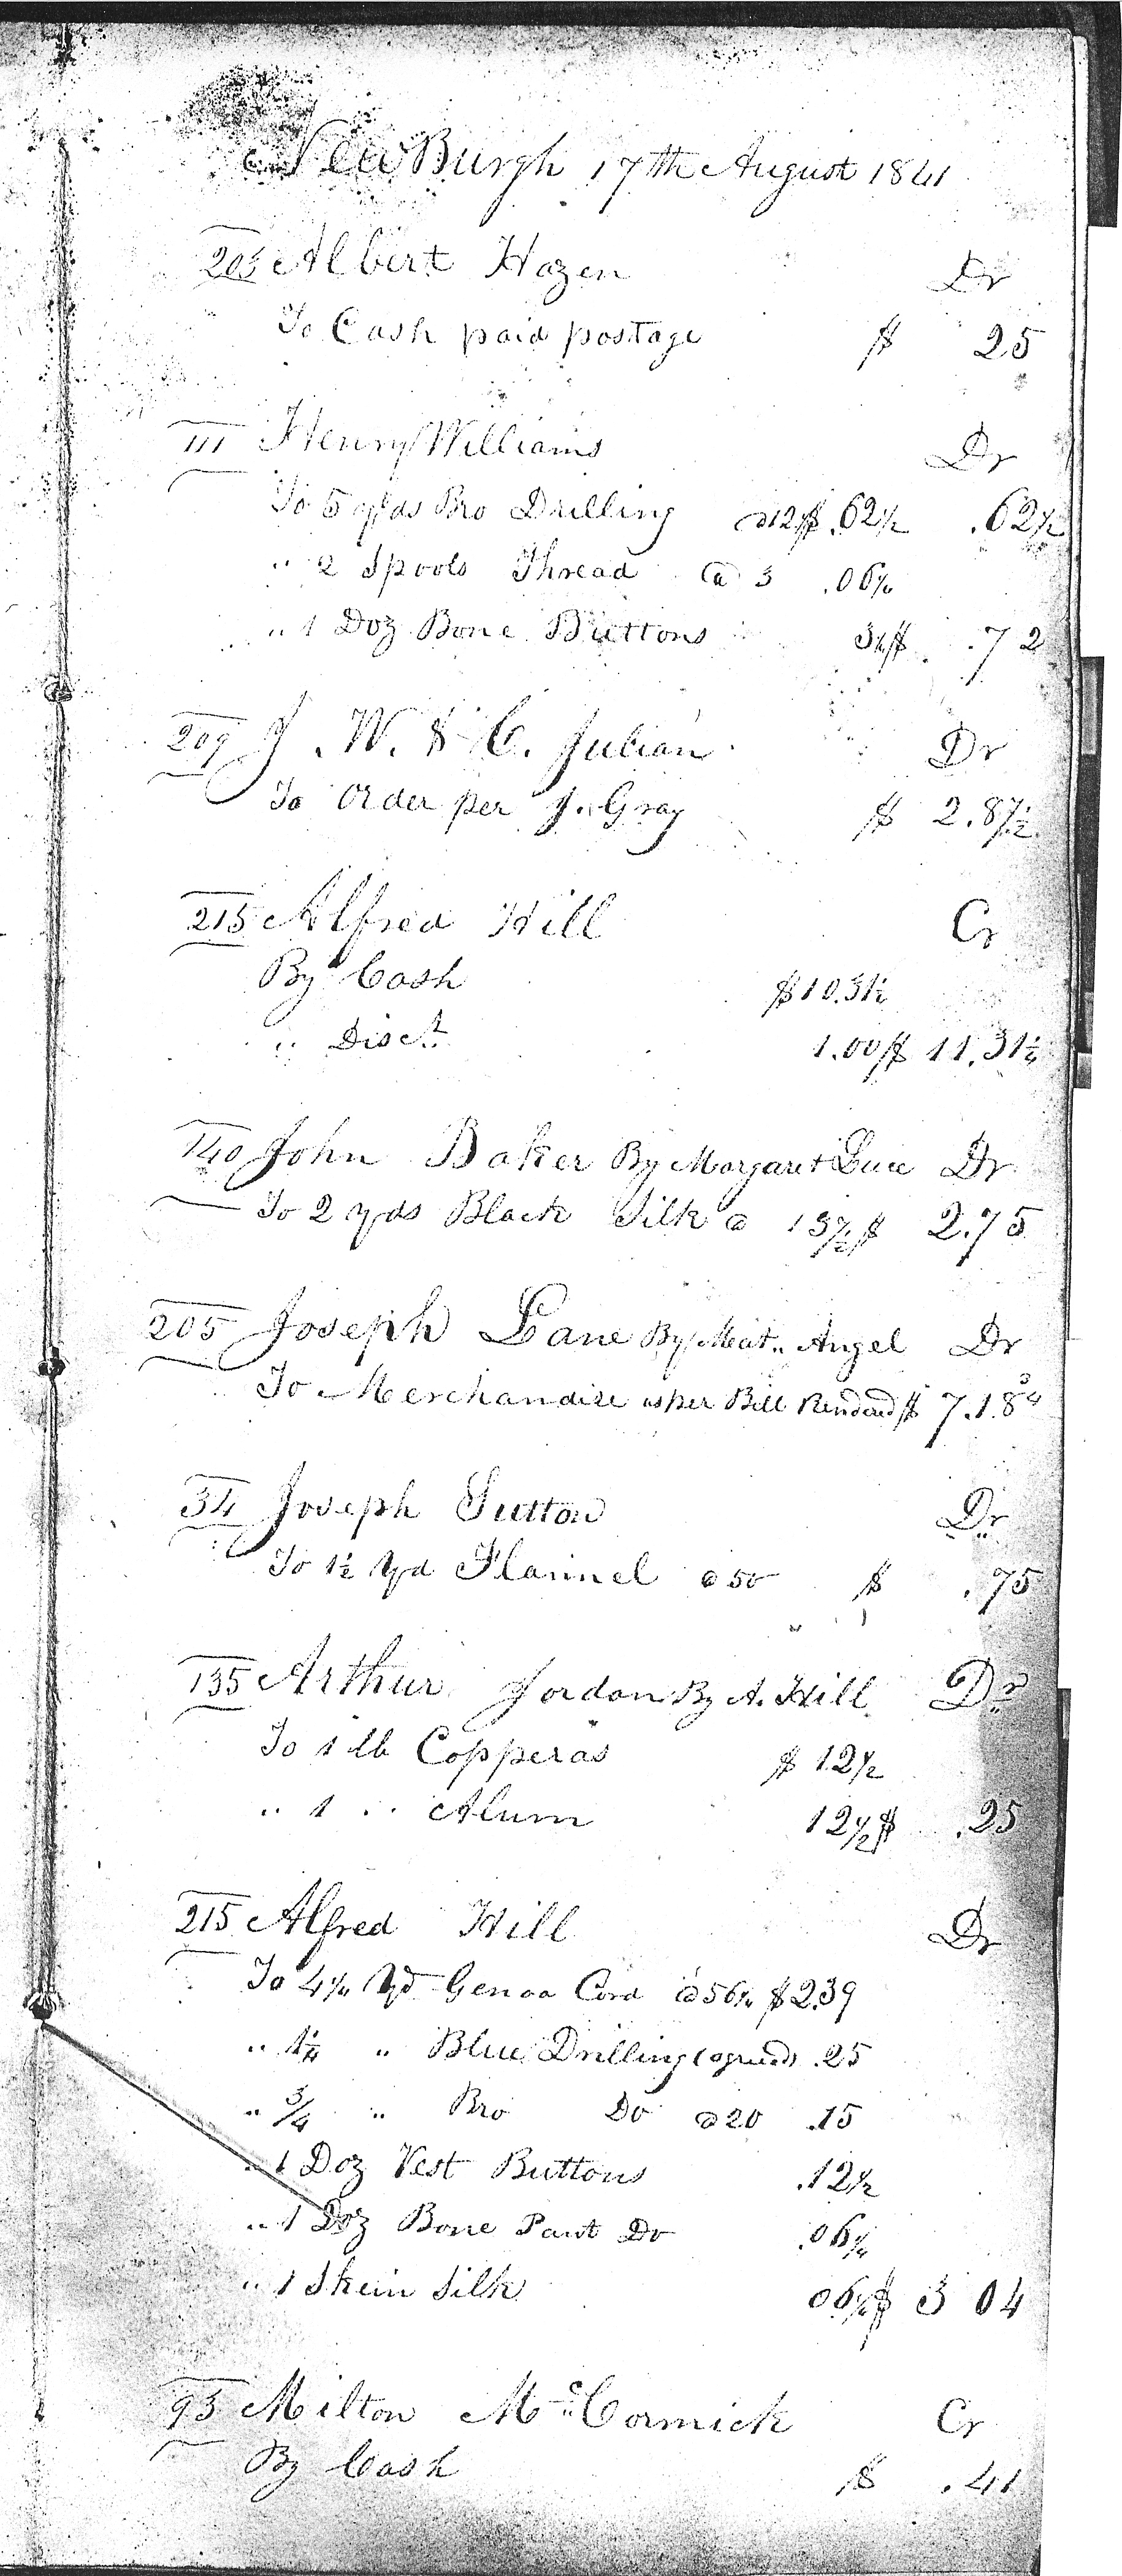 New Burgh 17th August 1841
203 Albert Hazen Dr
To Cash paid postage $ 25
111 Henry Williams Dr
To 5 yds Bro Drilling @12½ .62½ .62½
" 2 Spools Thread @ 3 .06¼
" 1 Doz Bone Buttons 3⅛$ .72
209 J. W. & C. Julian Dr
To Order per J. Gray $ 2.87½
215 Alfred Hill Cr
By Cash $10.31¼
" Disct 1.00 $ 11.31¼
140 John Baker By Margaret Luce Dr
To 2 yds Black Silk @ 137½ $ 2.75
205 Joseph Lane By Angel Dr
To Merchandize as per Bill Rendered $ 7.18¾
34 Joseph Sutton Dr
To 1½ Yd Flannel @ 50 $ .75
135 Arthur Jordon By A. Hill Dr
To 1 lb Copperas $ 12½
" 1 " Alum 12½ $ .25
215 Alfred Hill Dr
To 4¼ Yd Genoa Cord @56¼ $2.39
" 1¼ " Blue Drilling (agreed) .25
" 3/4 " Bro Do @20 .15
" 1 Doz Vest Buttons .12½
" 1 Doz Bone Pant Do .06¼
" 1 Skein Silk 06¼ $ 3 04
93 Milton McCormick Cr
By Cash $ .41